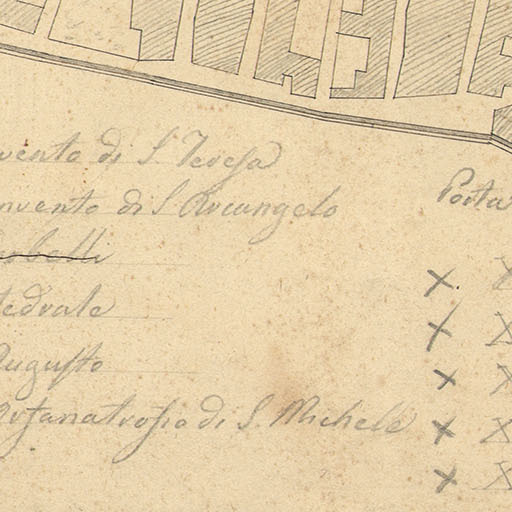 vento di S. Teresa
nvento di S. Arcangelo
Porta
belli
tedrale
Augusto
Orfanatrofio di S. Michele